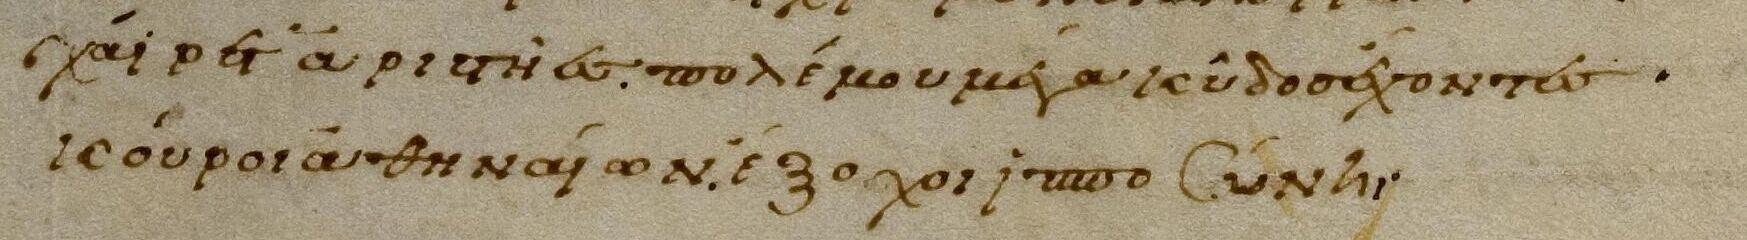 χαίρετ' ἀριστῆες πολέμου μέγα κῦδος ἔχοντες.
κοῦροι ἀθηναίων. ἔξοχοι ἱπποσύνηι